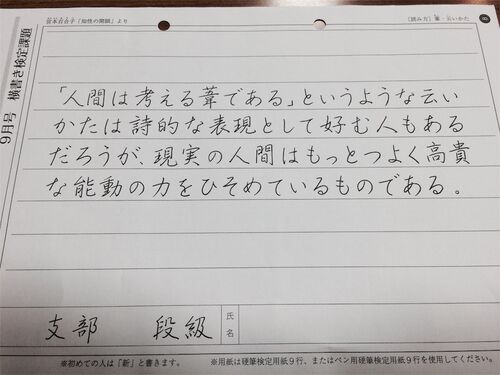 宮本百合子「知性の開眼」より
〔読み方〕葦・云いかた
8
9月号 横書き検定課題
「人間は考える葦である」というような云い
かたは詩的な表現として好む人もある
だろうが、現実の人間はもっとつよく高貴
な能動の力をひそめているものである。
支部 段級
氏名
※初めての人は「新」と書きます。
※用紙は硬筆検定用紙9行、またはペン用硬筆検定用紙9行を使用してください。